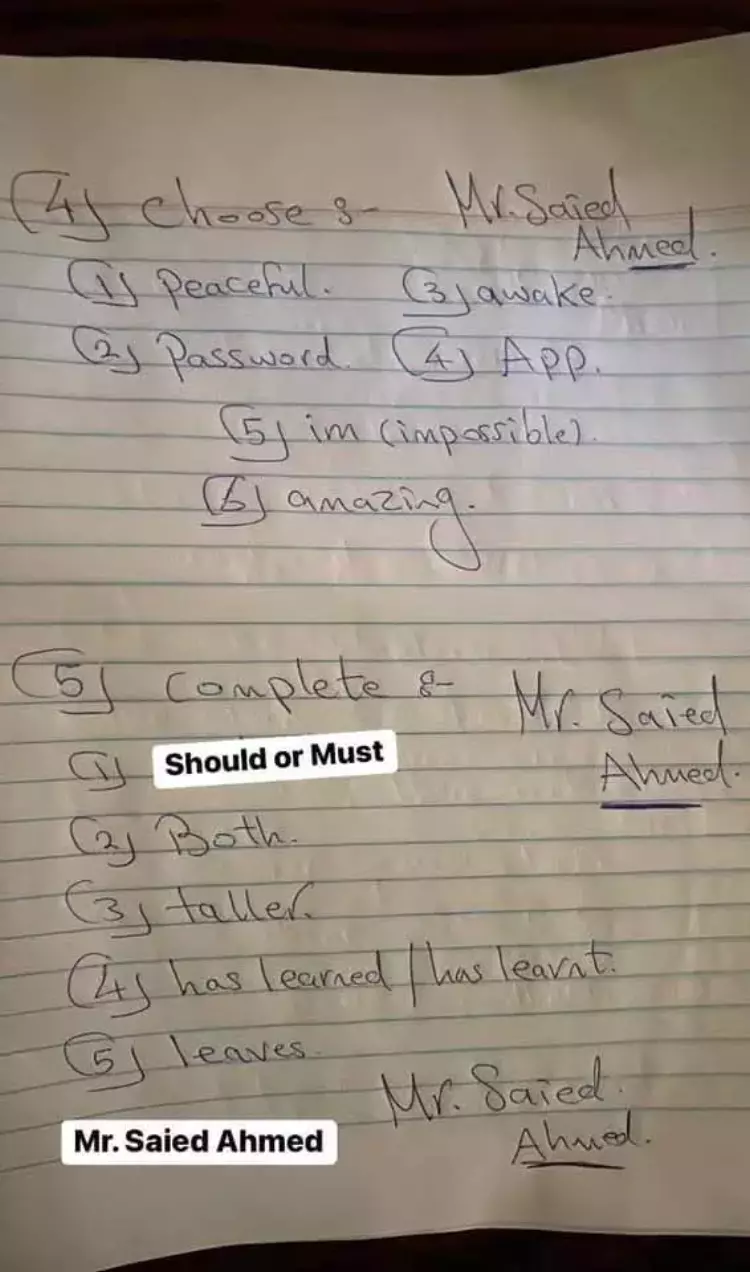 (4) Choose :- Mr. Saied
Ahmed.
(1) Peaceful. (3) awake.
(2) Password. (4) App.
(5) im (impossible).
(6) amazing.
(5) Complete :- Mr. Saied
(1) Should or Must Ahmed.
(2) Both.
(3) taller.
(4) has learned / has learnt.
(5) leaves.
Mr. Saied.
Mr. Saied Ahmed Ahmed.